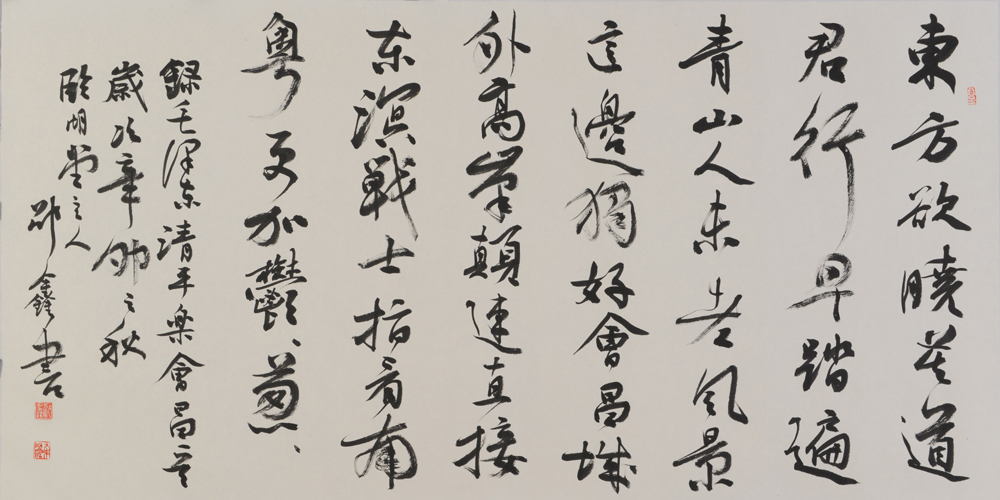 東方欲曉莫道
君行早踏遍
青山人未老風景
這邊獨好會昌城
外高峯顛連直接
东溟戰士指看南
粵更加鬱、葱、
錄毛澤东清平樂會昌
歲次辛卯之秋
堂主人
書